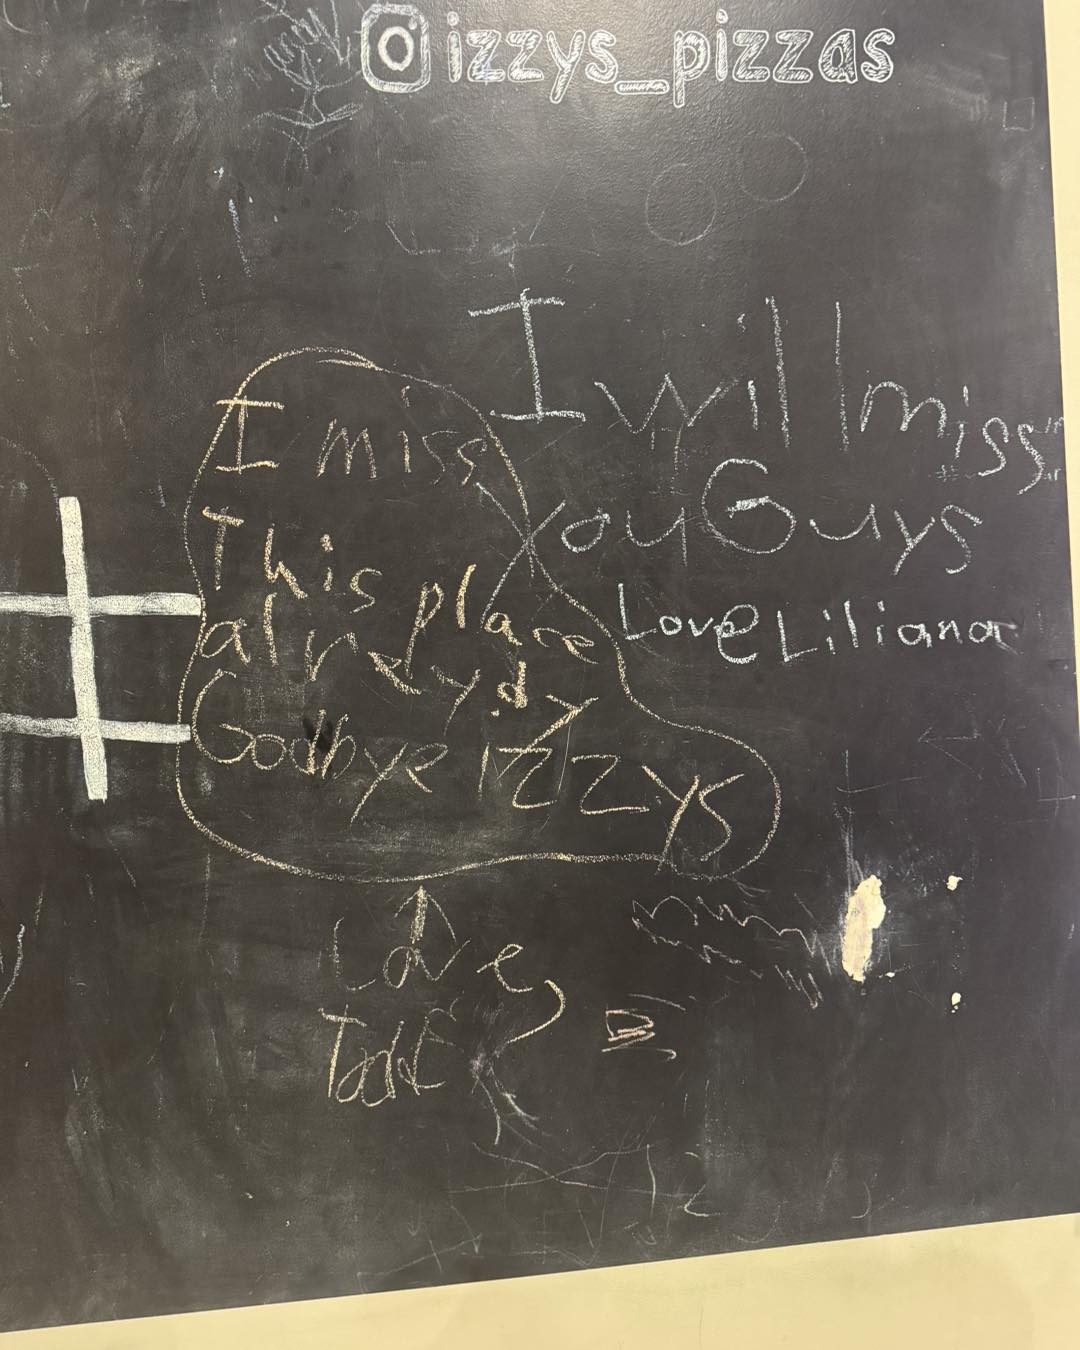 izzys_pizzas
I will miss
you Guys
Love Liliana
I miss
This place
alredydy
Goodbye izzys
Love,